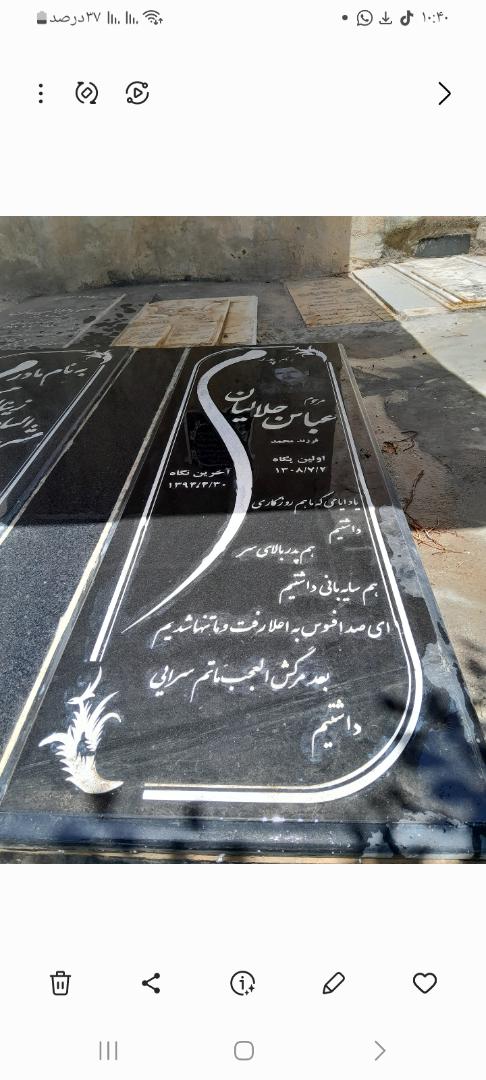 ۱۰:۴۰
۳۷درصد
به نام پدر
مرحوم
عباس جلالیان
فرزند محمد
اولین نگاه
۱۳۰۸/۷/۲
آخرین نگاه
۱۳۹۴/۴/۳۰
یاد ایامی که ما هم روزگاری
داشتیم
هم پدر بالای سر
هم سایه بانی داشتیم
ای صد افسوس به اعلا رفت و ما تنها شدیم
بعد مرگش العجب ماتم سرایی
داشتیم
به نام مادر